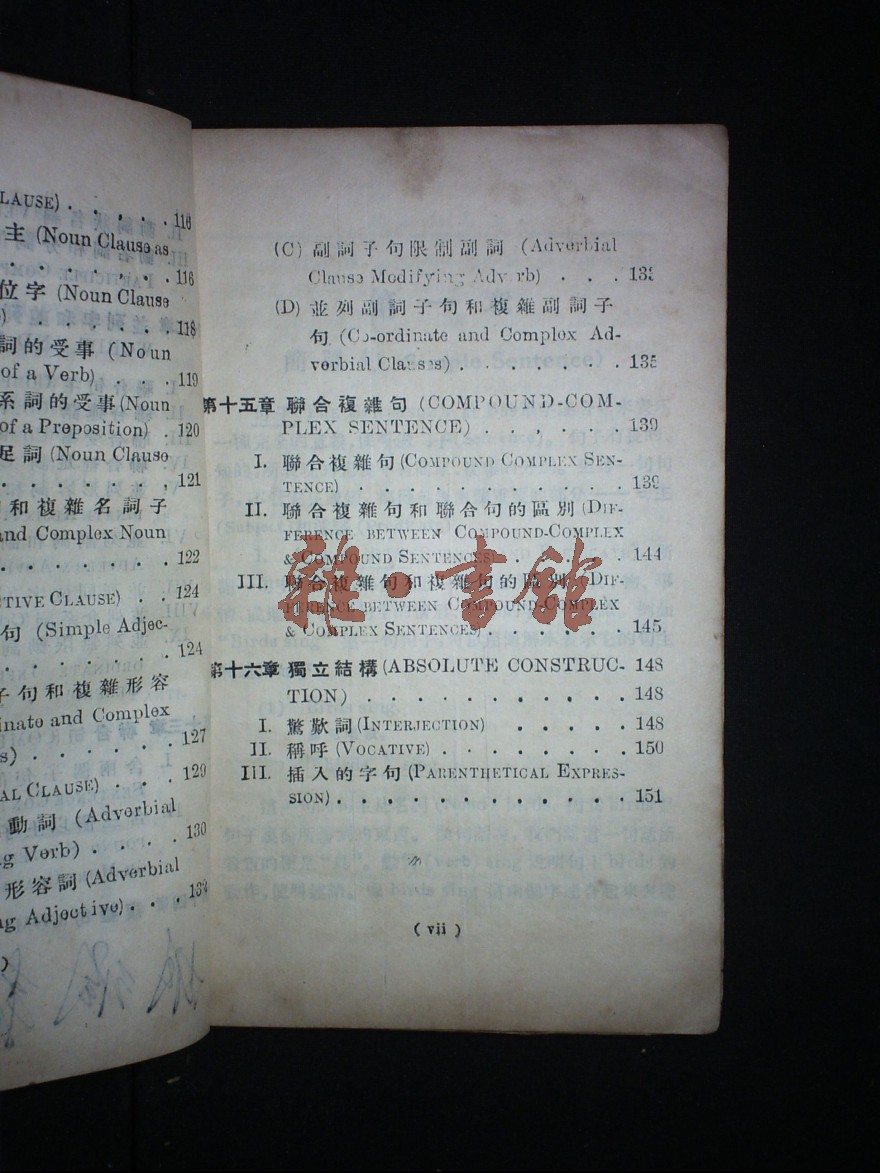 LAUSE) . . . . . 116
主 (Noun Clause as
. . . . . . . 116
位字 (Noun Clause
) . . . . . . . 118
詞的受事 (Noun
of a Verb) . . . 119
系詞的受事 (Noun
of a Preposition) . 120
足詞 (Noun Clause
. . . . . . . 121
和複雜名詞子
and Complex Noun
. . . . . . . 122
CTIVE CLAUSE) . . . 124
句 (Simple Adjec-
. . . . . . . 124
子句和複雜形容
inate and Complex
s) . . . . . . 127
AL CLAUSE) . . . 129
動詞 (Adverbial
ng Verb) . . . . 130
形容詞 (Adverbial
ng Adjective) . . . 132
)
(C) 副詞子句限制副詞 (Adverbial
Clause Modifying Adv rb) . . . 133
(D) 並列副詞子句和複雜副詞子
句 (Co-ordinate and Complex Ad-
verbial Clauses) . . . . . . . 135
第十五章 聯合複雜句 (COMPOUND-COM-
PLEX SENTENCE) . . . . . . 139
I. 聯合複雜句 (COMPOUND COMPLEX SEN-
TENCE) . . . . . . . . . . 139
II. 聯合複雜句和聯合句的區別 (DIF-
FERENCE BETWEEN COMPOUND-COMPLEX
& COMPOUND SENTENCES) . . . . . 144
III. 聯合複雜句和複雜句的區別 (DIF-
FERENCE BETWEEN COMPOUND-COMPLEX
& COMPLEX SENTENCES) . . . . . . 145
第十六章 獨立結構 (ABSOLUTE CONSTRUC- 148
TION) . . . . . . . . . . 148
I. 驚歎詞 (INTERJECTION) . . . . . . 148
II. 稱呼 (VOCATIVE) . . . . . . . . 150
III. 插入的字句 (PARENTHETICAL EXPRES-
SION) . . . . . . . . . . . . 151
( vii )
雜·書館